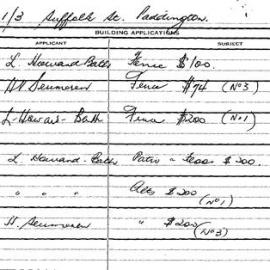 1/3 Suffolk St. Paddington.
BUILDING APPLICATIONS
APPLICANT SUBJECT
L. Howard Bath Fence $100.
Fence $74 (No 3)
L. Howard-Bath Fence $200 (No 1)
L. Howard-Bath Patio & $200.
" " " Alts $200
(No 1)
H. " $200
(No 3)